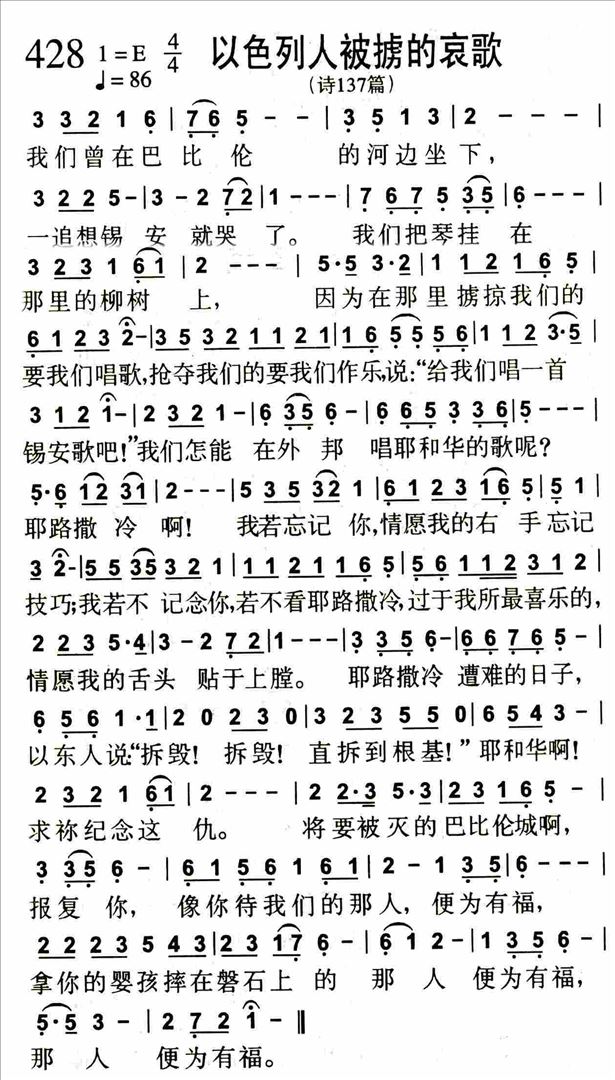 428 1=E 4/4 以色列人被掳的哀歌
♩=86 (诗137篇)
3 3 2 1 6 | 7 6 5 - - | 3 5 1 3 | 2 - - - |
我们曾在巴比伦 的河边坐下，
3 2 2 5 - | 3 - 2 7 2 | 1 - - - | 7 6 7 5 3 5 | 6 - - - |
一追想锡安就哭了。 我们把琴挂在
3 2 3 1 6 1 | 2 - - - | 5·5 3·2 | 1 1 2 1 6 5 |
那里的柳树上， 因为在那里掳掠我们的
6 1 2 3 2 - | 3 5 3 2 1 1 2 1 | 1 6 5 5 5 6 | 1 1 2 3·5 |
要我们唱歌，抢夺我们的要我们作乐，说：“给我们唱一首
3 1 2 1 - | 2 3 2 1 - | 6 3 5 6 - | 6 6 5 3 3 6 | 5 - - - |
锡安歌吧！”我们怎能在外邦唱耶和华的歌呢？
5·6 1 2 3 1 | 2 - - - | 5 3 5 3 2 1 | 6 1 2 3 1 6 5 | 5 1 |
耶路撒冷啊！ 我若忘记你，情愿我的右手忘记
3 2 - | 5 5 3 5 3 2 1 | 1 1 2 1 1 6 5 | 5 6 1 1 2 3 1 2 |
技巧；我若不记念你，若不看耶路撒冷，过于我所最喜乐的，
2 2 3 5·4 | 3 - 2 7 2 | 1 - - - | 3 3 5 6 - | 6 6 7 6 5 - |
情愿我的舌头贴于上膛。 耶路撒冷遭难的日子，
6 5 6 1·1 | 2 0 2 3 0 | 3 2 3 5 5 0 | 6 5 4 3 - |
以东人说：“拆毁！拆毁！直拆到根基！”耶和华啊！
2 3 2 1 6 1 | 2 - - - | 2 2·3 5·3 | 2 2 3 1 6 5 - |
求祢纪念这仇。 将要被灭的巴比伦城啊，
3 3 5 6 - | 6 1 5 6 1 6 1 | 2 - 1 3 5 | 6 - - - |
报复你，像你待我们的那人，便为有福，
2 2 2 3 5 4 3 | 2 3 1 7 6 - | 6 1 2 - | 1 3 5 6 - |
拿你的婴孩摔在磐石上的那人便为有福，
5·5 3 - | 2 7 2 1 - ‖
那人便为有福。